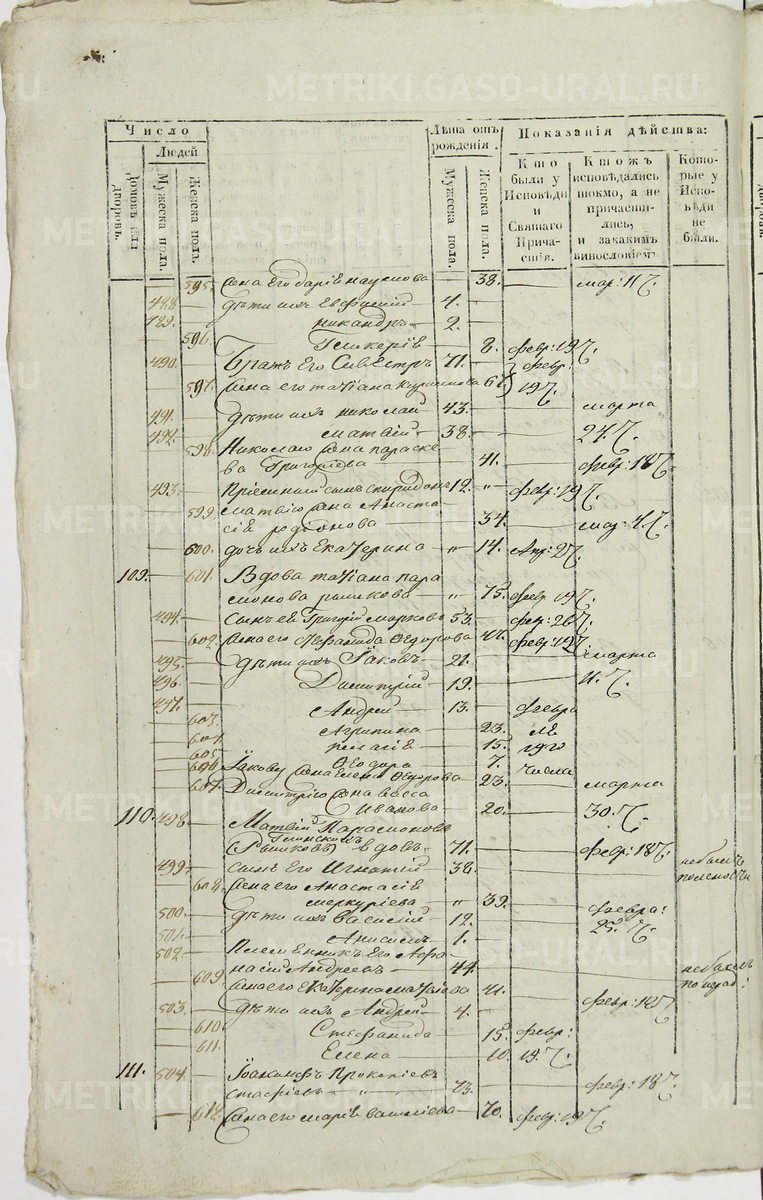 METRIKI.GASO-URAL.RU
Число
Людей
Домовъ или дворовъ.
Мужеска пола.
Женска пола.
Лѣта отъ рожденія.
Мужеска пола.
Женска пола.
Показанія дѣйства:
Кто были у Исповѣди и Святаго Причастія.
Ктожъ исповѣдались токмо, а не причастились, и закакимъ винословіемъ
Которые у Исповѣди не были.
595. Жена его Дарія Наумова 38. мар: 11 ч.
488. дѣти ихъ Евфимій 4.
489. Никандръ 2.
596. Гликерія 8. февр: 19 ч.
490. Братъ его Сивестръ 71. февр:
597. Жена его Татіана 67 19 ч.
491. дѣти ихъ Николай 43. марта
492. Матвій 38. 24. ч.
598. Николаю жена Параске
ва Григоріева 41. февр: 18 ч.
493. сынъ Спиридонъ 12. " февр: 19 ч.
599. Матвію жена Анаста
сія Родіонова 34. мар: 4. ч.
600. дочь ихъ Екатерина " 14. Апр: 2 ч.
109. 601. Вдова Татіана Пара
монова " 75. февр 19 ч.
494. Сынъ ея Григорій Марковъ 53. фев: 26 ч.
602. Жена его Ѳедорова 47. февр: 19 ч.
495. дѣти ихъ Іаковъ 21. марта
496. Димитрій 19. 11. ч.
497. Андрей 13. февра
603. Агрипина 23. ля
604. Пелагія 15. 19го
605. Ѳеодора 7. числа
606. Іакову жена Елена Ѳедорова 23.
607. Димитрію жена
Иванова 20. марта 30. ч.
110. 498. Матвій Парамоновъ
вдовъ 71. февр: 18 ч.
499. сынъ его Игнатій 38. небылъ
608. Жена его Анастасія
Меркуріева " 39. февра:
500. дѣти ихъ Василій 12. 25. ч.
501. Анисимъ 1.
502. Племенникъ его Афа
насій Андреевъ 44. небылъ
609. Жена его Екатерина Матвіева 41. февр: 18 ч.
503. дѣти ихъ Андрей 4.
610. Стефанида 15. февр:
611. Елена 10. 19. ч.
111. 504. Іоакимъ Прокопіевъ
73. февр: 18 ч.
612. Жена его Марія Василіева 70. февр: 19 ч.